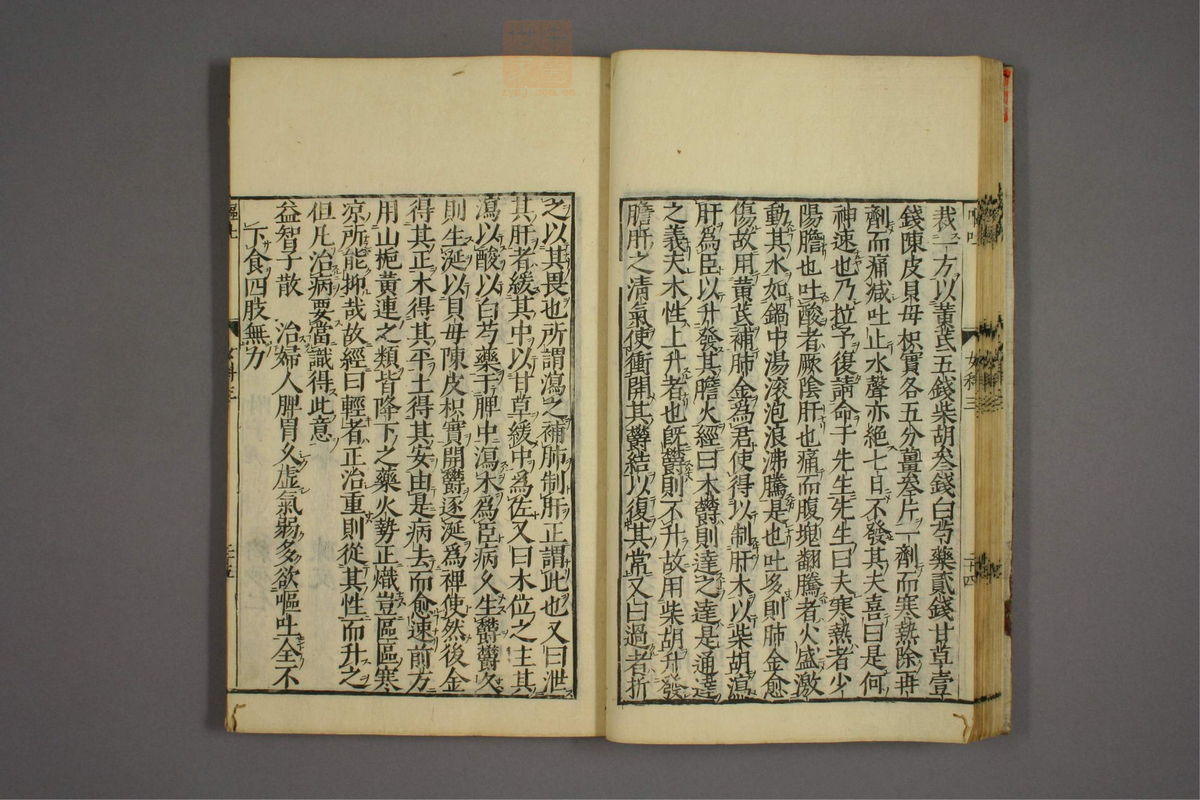 裁一方以黃芪五錢柴胡叁錢白芍藥貳錢甘草壹
錢陳皮貝母枳實各五分薑叁片一劑而寒熱除再
劑而痛减吐止水聲亦絕七日不發其夫喜曰是何
神速也乃拉予復請命于先生先生曰夫寒熱者少
陽膽也吐酸者厥陰肝也痛而腹塊翻騰者火盛激
動其水如鍋中湯滚泡浪沸騰是也吐多則肺金愈
傷故用黃芪補肺金為君使得以制肝木以柴胡瀉
肝為臣以升發其膽火經曰木欝則達之達是通達
之義夫木性上升者也既欝則不升故用柴胡升發
膽肝之清氣使衝開其欝結以復其常又曰過者折
之以其畏也所謂瀉之補肺制肝正謂此也又曰泄
其肝者緩其中以甘草緩中為佐又曰木位之主其
瀉以酸以白芍藥于脾中瀉木為臣病久生欝欝久
則生涎以貝母陳皮枳實開欝逐涎為裨使然後金
得其正木得其平土得其安由是病去而愈速前方
用山梔黃連之類皆降下之藥火勢正熾豈區區寒
凉所能抑哉故經曰輕者正治重則從其性而升之
但凡治病要當識得此意
益智子散　治婦人脾胃久虛氣弱多欲嘔吐全不
下食四肢無力
嘔吐　女科三　二十四
女科三　二十五